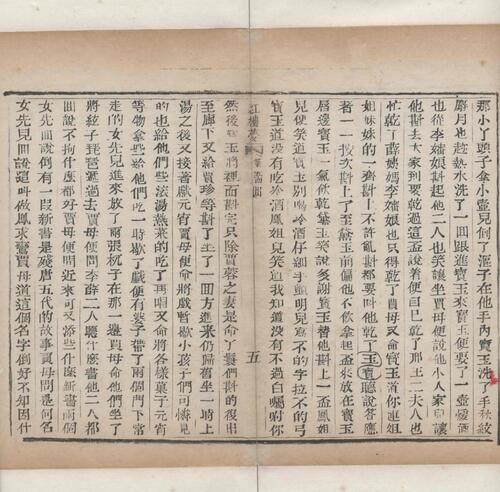 那小丫頭子拿小壺兒倒了漚子在他手內寶玉洗了手秋紋
麝月也趁熱水洗了一囘跟進寶玉來寶玉便要了一壺煖酒
也從李嬸娘斟起他二人也笑讓坐賈母便說他小人家兒讓
他斟去大家到要乾過這盃說着便自己乾了邢王二夫人也
忙乾了薛姨媽李嬸娘也只得乾了賈母又命寶玉道你連姐
姐妹妹的一齊斟上不許亂斟都要叫他乾了寶玉聽說答應
着一一按次斟上了至黛玉前偏他不飲拿起盃來放在寶玉
唇邊寶玉一氣飲乾黛玉笑說多謝寶玉替他斟上一盃鳳姐
兒便笑道寶玉別喝冷酒仔細手顫明兒寫不的字拉不的弓
寶玉道沒有吃冷酒鳳姐兒笑道我知道沒有不過白囑咐你
紅樓夢
五
然後寶玉將裡面斟完只除賈蓉之妻是命丫鬟們斟的復出
至廊下又給賈珍等斟了坐了一囘方進來仍歸舊坐一時上
湯之後又接着獻元宵賈母便命將戲暫歇小孩子們可憐見
的也給他們些滾湯熱菜的吃了再唱又命將各樣菓子元宵
等物拿些給他們吃一時歇了戲便有婆子帶了兩個門下常
走的女先兒進來放了兩張杌子在那一邊賈母命他們坐了
將絃子琵琶遞過去賈母便問李薛二人聽什麽書他二人都
囘說不拘什麽都好賈母便問近來可又添些什麽新書兩個
女先囘說倒有一段新書是殘唐五代的故事賈母問是何名
女先兒囘說這叫做鳳求鸞賈母道這個名字倒好不知因什